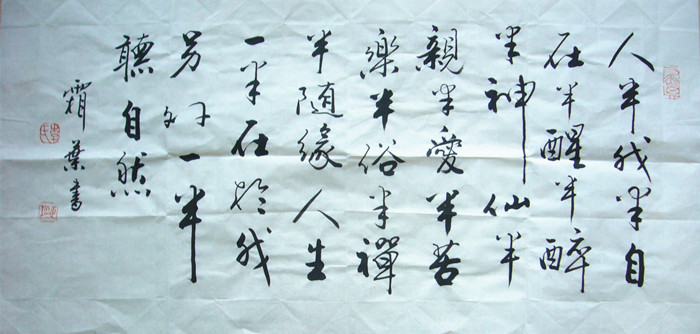 人半我半自
在半醒半醉
半神仙半
親半愛半苦
樂半俗半禪
半隨緣人生
一半在於我
另外一半
聽自然
霜葉書